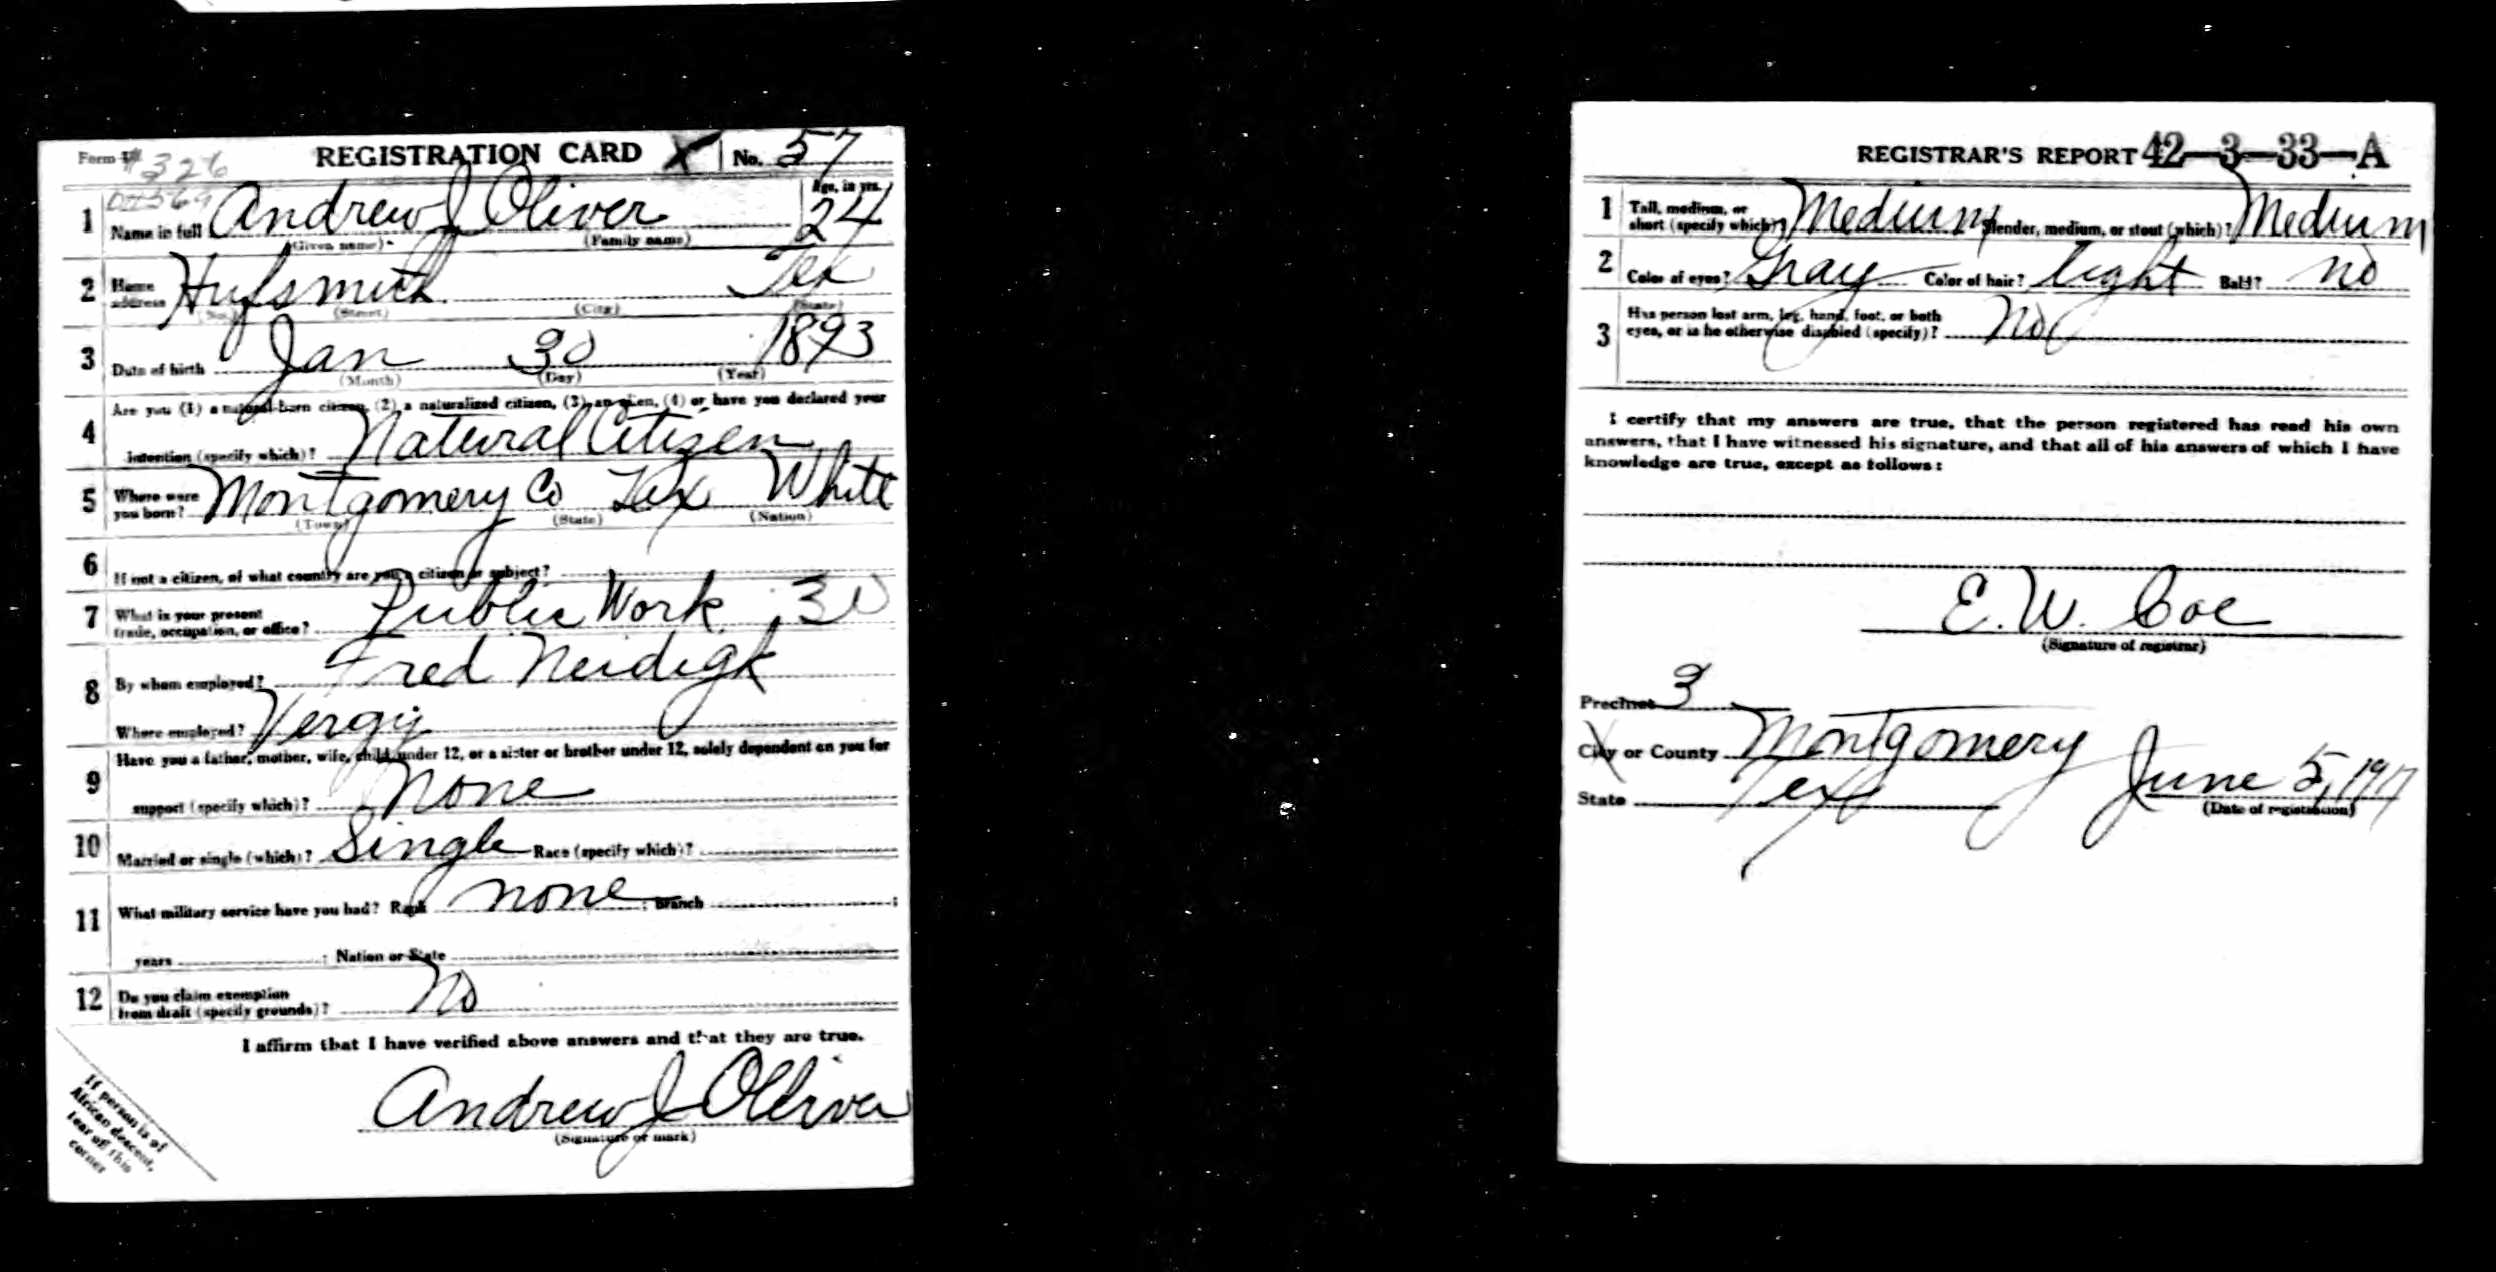 Form 1 326 REGISTRATION CARD X No. 57
1 Name in full Andrew J Oliver Age, in yrs. 24
(Given name) (Family name)
2 Home address Hufsmith Tex
(No.) (Street) (City) (State)
3 Date of birth Jan 30 1893
(Month) (Day) (Year)
4 Are you (1) a natural-born citizen, (2) a naturalized citizen, (3) an alien, (4) or have you declared your
intention (specify which)? Natural Citizen
5 Where were you born? Montgomery Co Tex White
(Town) (State) (Nation)
6 If not a citizen, of what country are you a citizen or subject?
7 What is your present trade, occupation, or office? Public Work 30
8 By whom employed? Fred Neidigk
Where employed?
9 Have you a father, mother, wife, child under 12, or a sister or brother under 12, solely dependent on you for
support (specify which)? None
10 Married or single (which)? Single Race (specify which)?
11 What military service have you had? Rank none ; Branch ;
years ; Nation or State
12 Do you claim exemption from draft (specify grounds)? No
I affirm that I have verified above answers and that they are true.
Andrew J Olliver
(Signature or mark)
If person is of
African descent,
tear off this
corner
REGISTRAR'S REPORT 42-3-33-A
1 Tall, medium, or short (specify which)? Medium Slender, medium, or stout (which)? Medium
2 Color of eyes? Gray Color of hair? light Bald? no
3 Has person lost arm, leg, hand, foot, or both
eyes, or is he otherwise disabled (specify)? No
I certify that my answers are true, that the person registered has read his own
answers, that I have witnessed his signature, and that all of his answers of which I have
knowledge are true, except as follows:
E. W. Coe
(Signature of registrar)
Precinct 3
City or County Montgomery
State Tex June 5, 1917
(Date of registration)